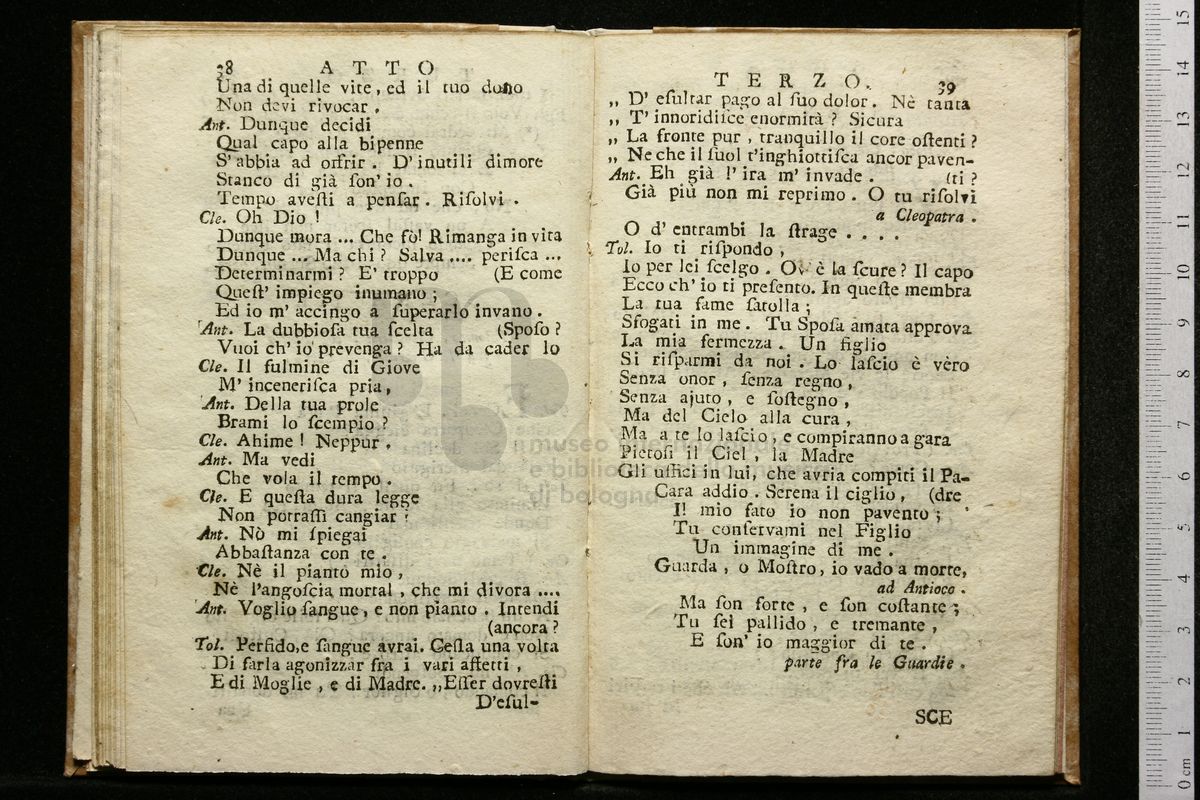 38 ATTO
Una di quelle vite, ed il tuo dono
Non devi rivocar.
Ant. Dunque decidi
Qual capo alla bipenne
S'abbia ad offrir. D'inutili dimore
Stanco di già ſon' io.
Tempo aveſti a penſar. Riſolvi.
Cle. Oh Dio!
Dunque mora ... Che fò! Rimanga in vita
Dunque ... Ma chi? Salva .... periſca ...
Determinarmi? E' troppo (E come
Queſt' impiego inumano;
Ed io m' accingo a ſuperarlo invano.
Ant. La dubbioſa tua ſcelta (Spoſo?
Vuoi ch' io prevenga? Ha da cader lo
Cle. Il fulmine di Giove
M' inceneriſca pria,
Ant. Della tua prole
Brami lo ſcempio?
Cle. Ahime! Neppur.
Ant. Ma vedi
Che vola il tempo.
Cle. E queſta dura legge
Non potraſſi cangiar?
Ant. Nò mi ſpiegai
Abbaſtanza con te.
Cle. Nè il pianto mio,
Nè l'angoſcia mortal, che mi divora ....
Ant. Voglio ſangue, e non pianto. Intendi
(ancora?
Tol. Perfido, e ſangue avrai. Ceſſa una volta
Di farla agonizzar fra i vari affetti,
E di Moglie, e di Madre. „Eſſer dovreſti
D'eſul-
TERZO. 39
„ D' eſultar pago al ſuo dolor. Nè tanta
„ T' innoridiſce enormità? Sicura
„ La fronte pur, tranquillo il core oſtenti?
„ Ne che il ſuol t'inghiottiſca ancor paven-
Ant. Eh già l' ira m' invade. (ti?
Già più non mi reprimo. O tu riſolvi
a Cleopatra.
O d' entrambi la ſtrage ....
Tol. Io ti riſpondo,
Io per lei ſcelgo. Ov' è la ſcure? Il capo
Ecco ch' io ti preſento. In queſte membra
La tua fame ſatolla;
Sfogati in me. Tu Spoſa amata approva
La mia fermezza. Un figlio
Si riſparmi da noi. Lo laſcio è vèro
Senza onor, ſenza regno,
Senza ajuto, e ſoſtegno,
Ma del Cielo alla cura,
Ma a te lo laſcio, e compiranno a gara
Pietoſi il Ciel, la Madre
Gli uffici in lui, che avria compiti il Pa-
Cara addio. Serena il ciglio, (dre
Il mio fato io non pavento;
Tu conſervami nel Figlio
Un immagine di me.
Guarda, o Moſtro, io vado a morte,
ad Antioco.
Ma ſon forte, e ſon coſtante;
Tu ſei pallido, e tremante,
E ſon' io maggior di te.
parte fra le Guardie.
SCE
museo internazionale
e biblioteca della musica
di bologna
0 cm 1 2 3 4 5 6 7 8 9 10 11 12 13 14 15